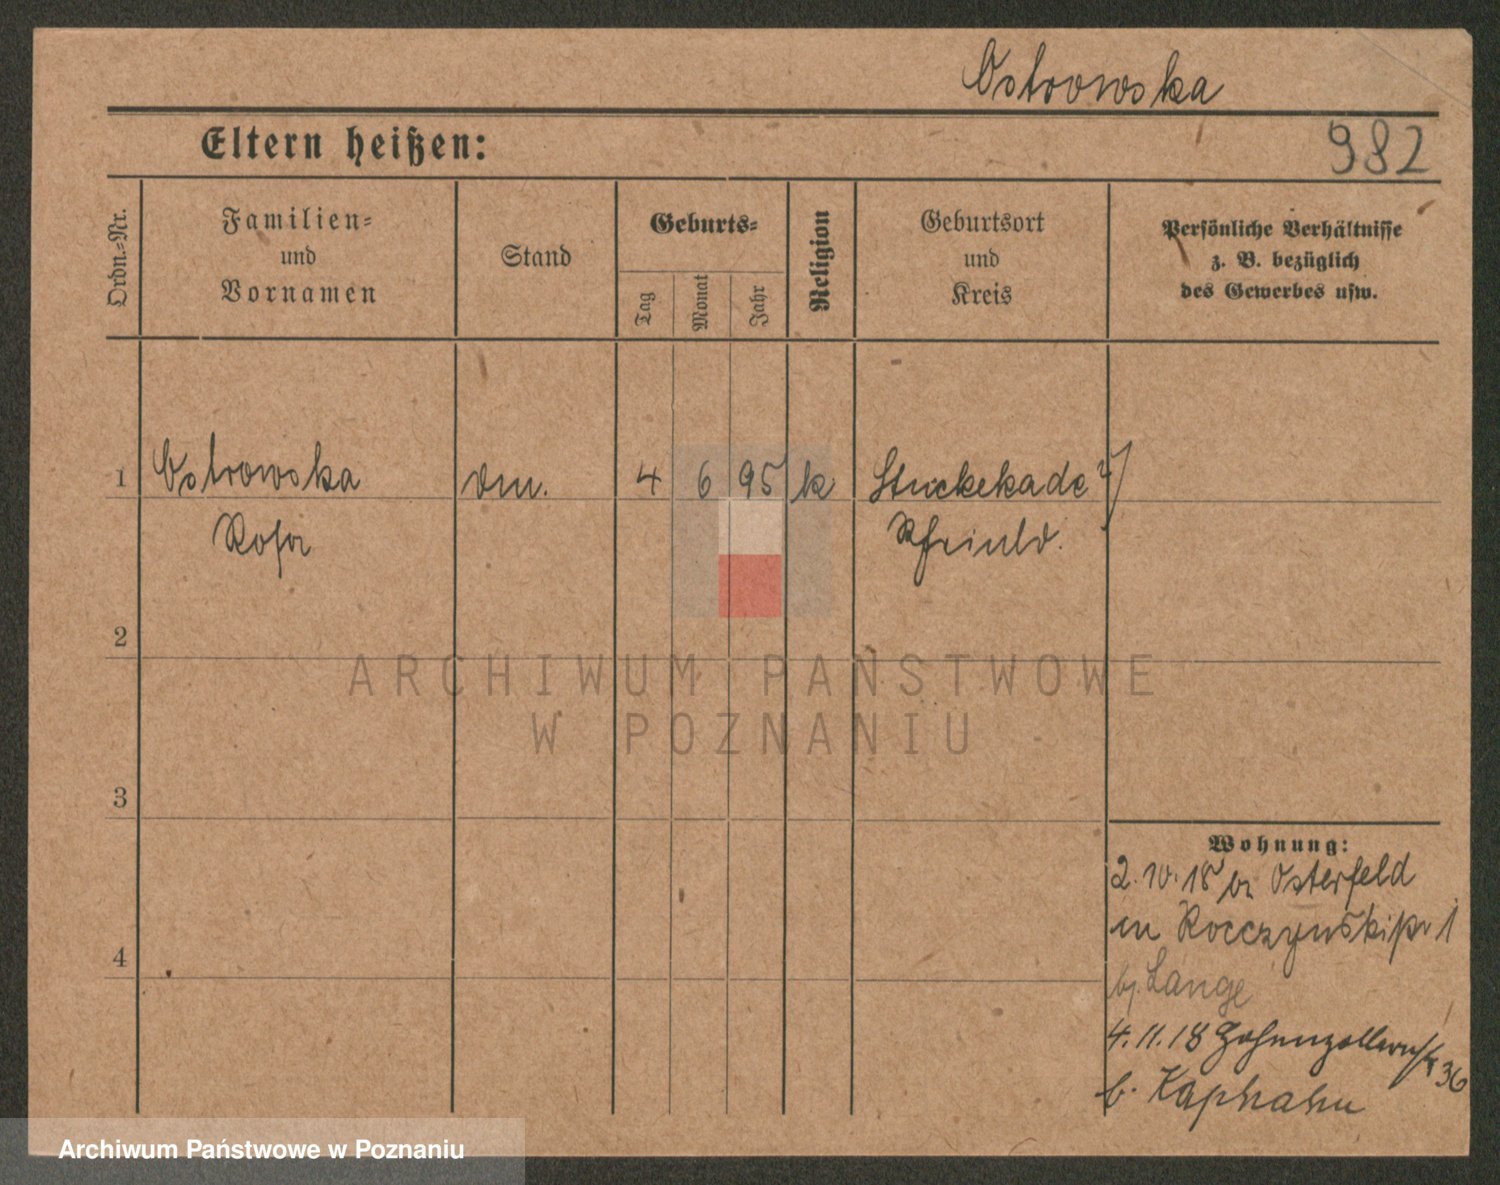 Ostrowska
982
Eltern heißen:
Ordn.-Nr.
Familien-
und
Vornamen
Stand
Geburts-
Tag
Monat
Jahr
Religion
Geburtsort
und
Kreis
Persönliche Verhältnisse
z. B. bezüglich
des Gewerbes usw.
1 Ostrowska 4 6 95 k
Rosa
2
3
4
Wohnung:
2.10.18 Osterfeld
in
bj. Lange
4.11.18 Hohenzollernstr 36
b. Kaphahn
ARCHIWUM PAŃSTWOWE
W POZNANIU
Archiwum Państwowe w Poznaniu